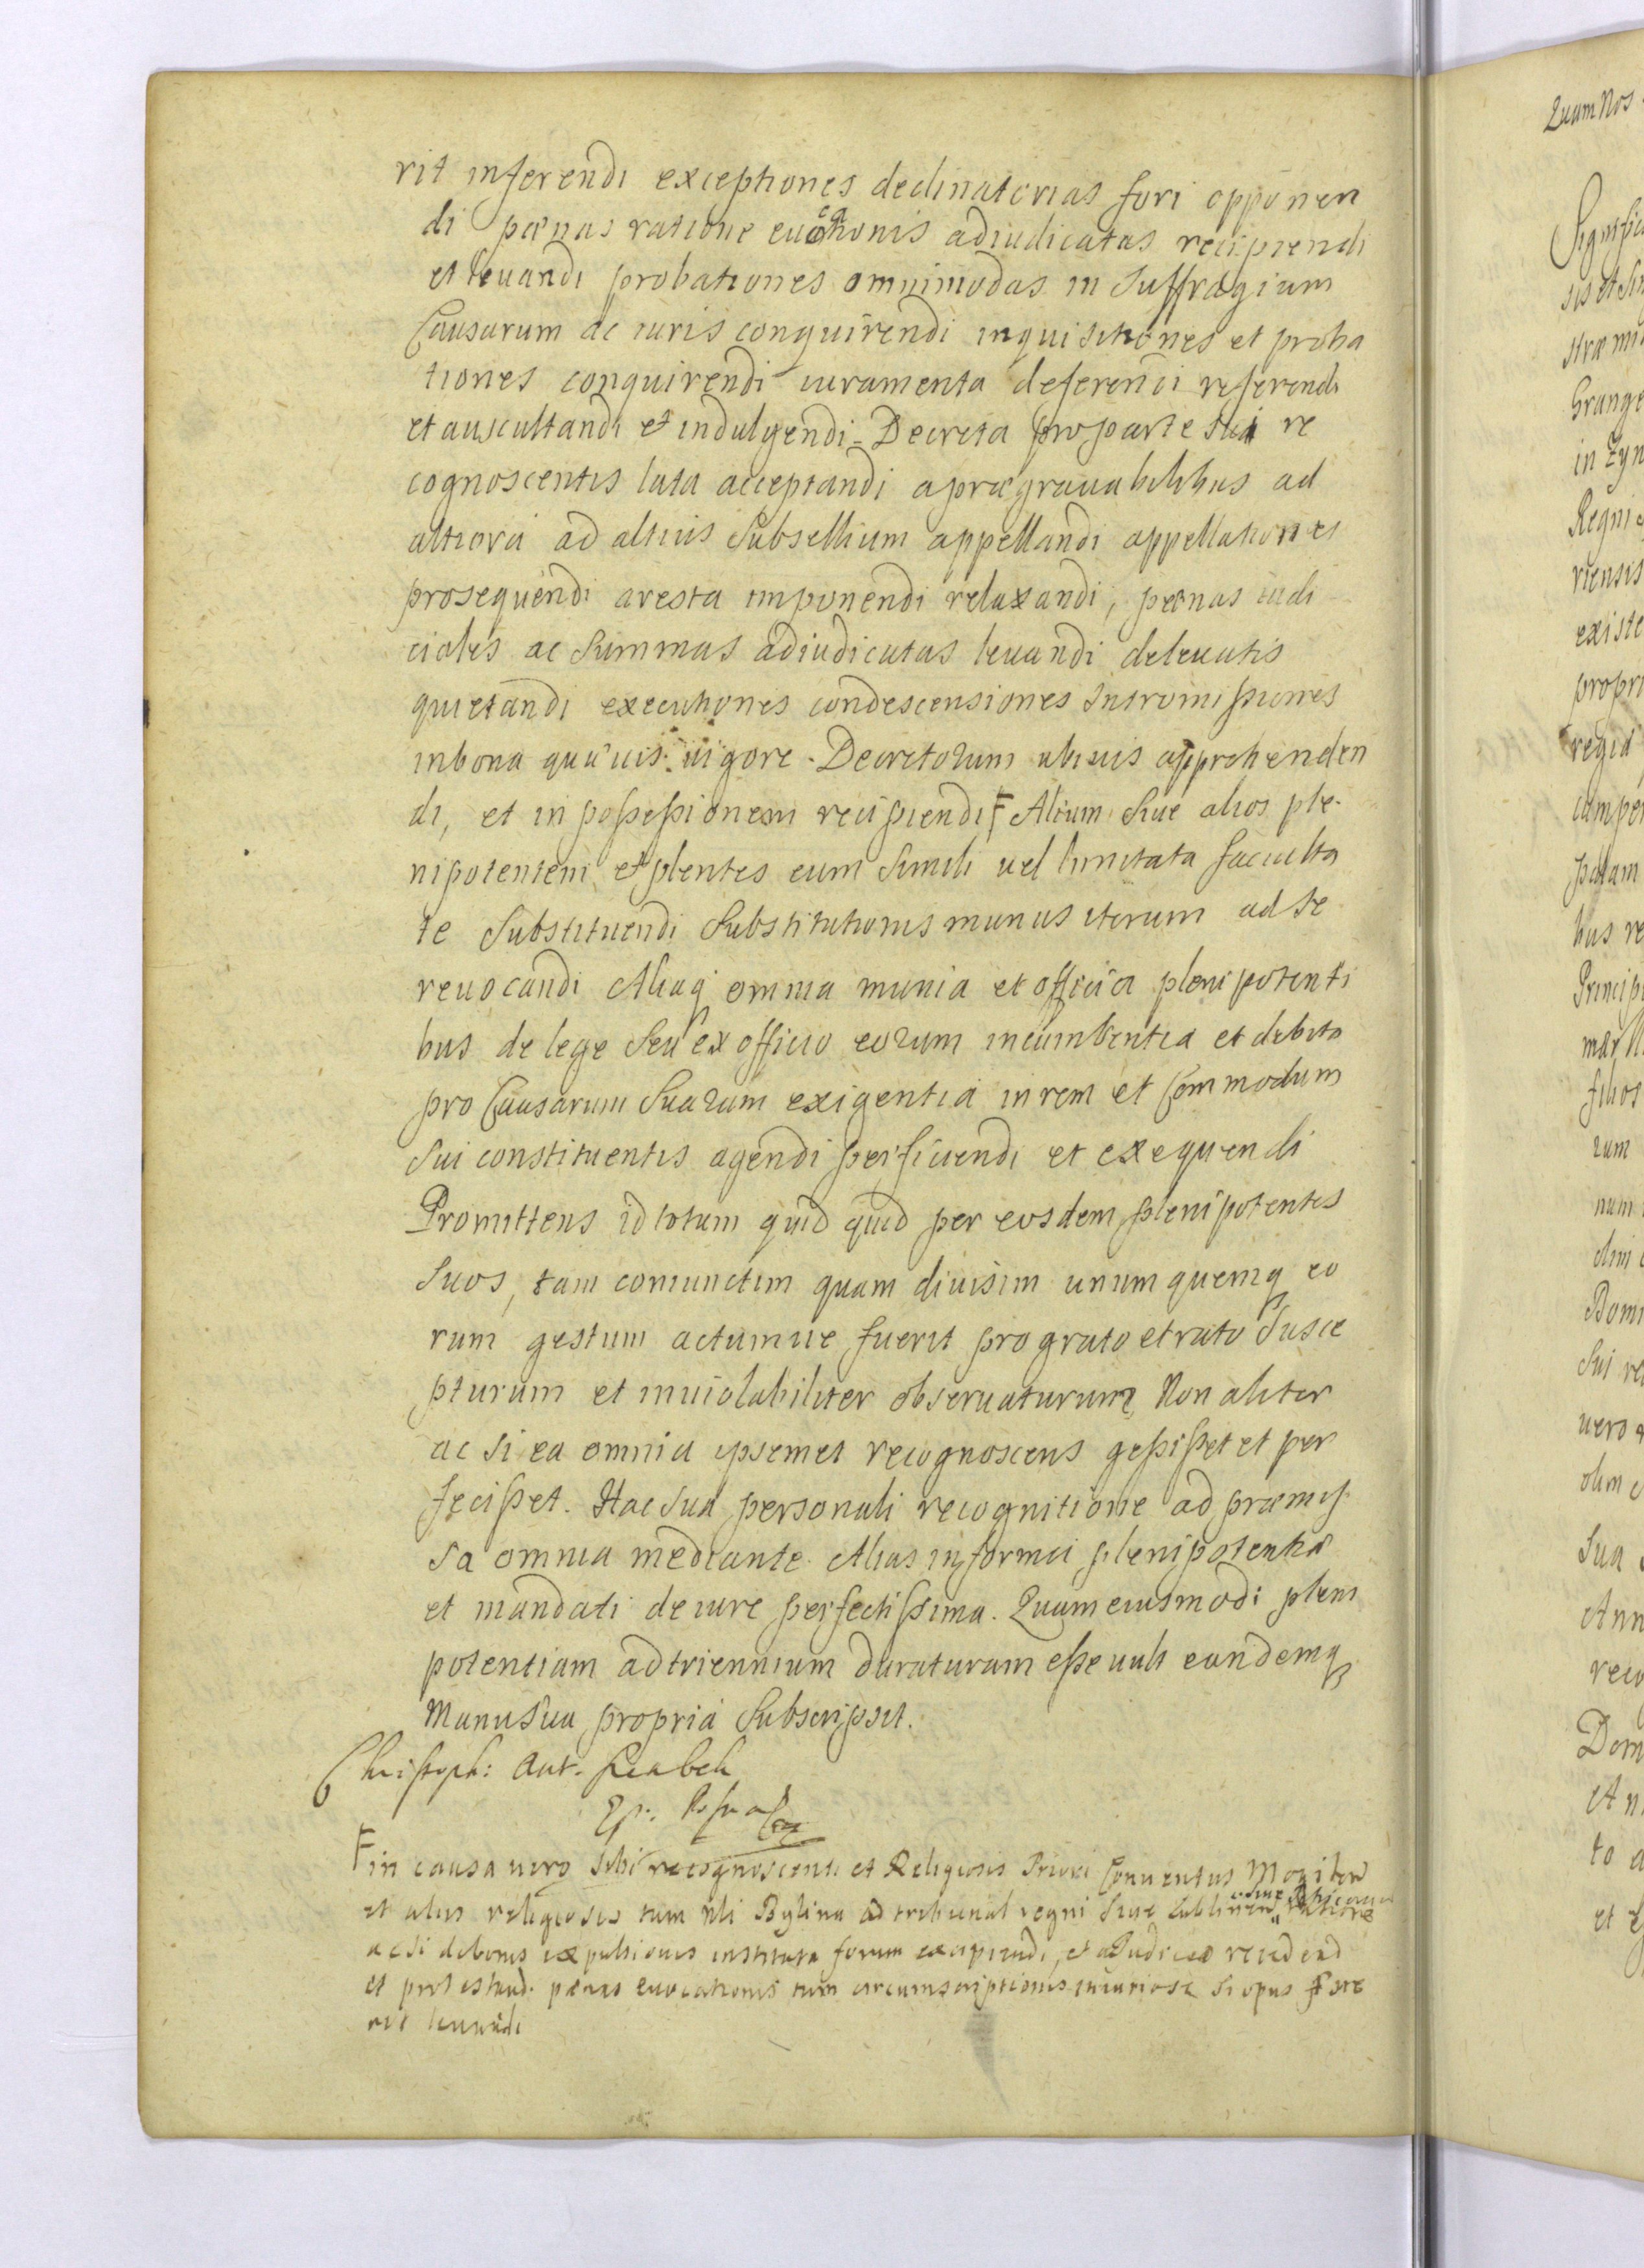 rit inferendi exceptiones declinatorias fori opponen
di pænas ratione euocationis adiudicatas recipiendi
et leuandi probationes omnimodas in Suffragium
Causarum ac iuris conquirendi inquisitiones et proba
tiones conquirendi iuramenta deferendi referendi
et auscultandi et indulgendi Decreta pro parte sui re
cognoscentis lata acceptandi a prægrauabilibus ad
altiora ad altius Subsellium appellandi appellationes
prosequendi aresta imponendi relaxandi, pœnas iudi
ciales ac Summas adiudicatas leuandi deleuatis
quietandi executiones condescensiones Intromißiones
in bona quæuis uigore Decretorum ubiuis apprehenden
di, et in poßeßionem recipiendi F Alium Siue alios ple-
nipotentem et plentes cum Simili uel limitata faculta
te Substituendi Substitutionis munus iterum ad se
reuocandi Aliaq omnia munia et officia plenipotenti
bus de lege Seu ex officio eorum incumbentia et debita
pro Causarum Suarum exigentia in rem et Commodum
Sui constituentis agendi perficiendi et exequendi
Promittens id totum quid quid per eosdem plenipotentes
Suos, tam coniunctim quam diuisim unum quemq eo
rum gestum actumue fuerit pro grato et rato Susce
pturum et inuiolabiliter obseruaturum Non aliter
ac si ea omnia ipsemet recognoscens geßißet et per
fecißet. Hac Sua personali recognitione ad præmiß
sa omnia mediante Alias in forma plenipotentiæ
et mandati de iure perfectißima. Quam eiusmodi pleni
potentiam ad triennium duraturam eße uult eandemq
Manu Sua propria Subscripsit.
Christoph: Ant.
F in causa uero Sibi recognoscenti et Religiosis Priori Conuentus
et aliis religiosis tum Bylina ad tribunal regni Siue
ac si de bonis expulsionis instituta forum excipiendi, et
et protestand. pænas euocationis tum circumscriptionis iniuriosæ Si opus fue
rit leuandi
Quam Nos
in
Regni
riensis
existe
propri
regia
palam
bus re
Princip
filios
rum
num
olim
Sui re
uero
olim
Sua
Ann
reco
Dom
to
et